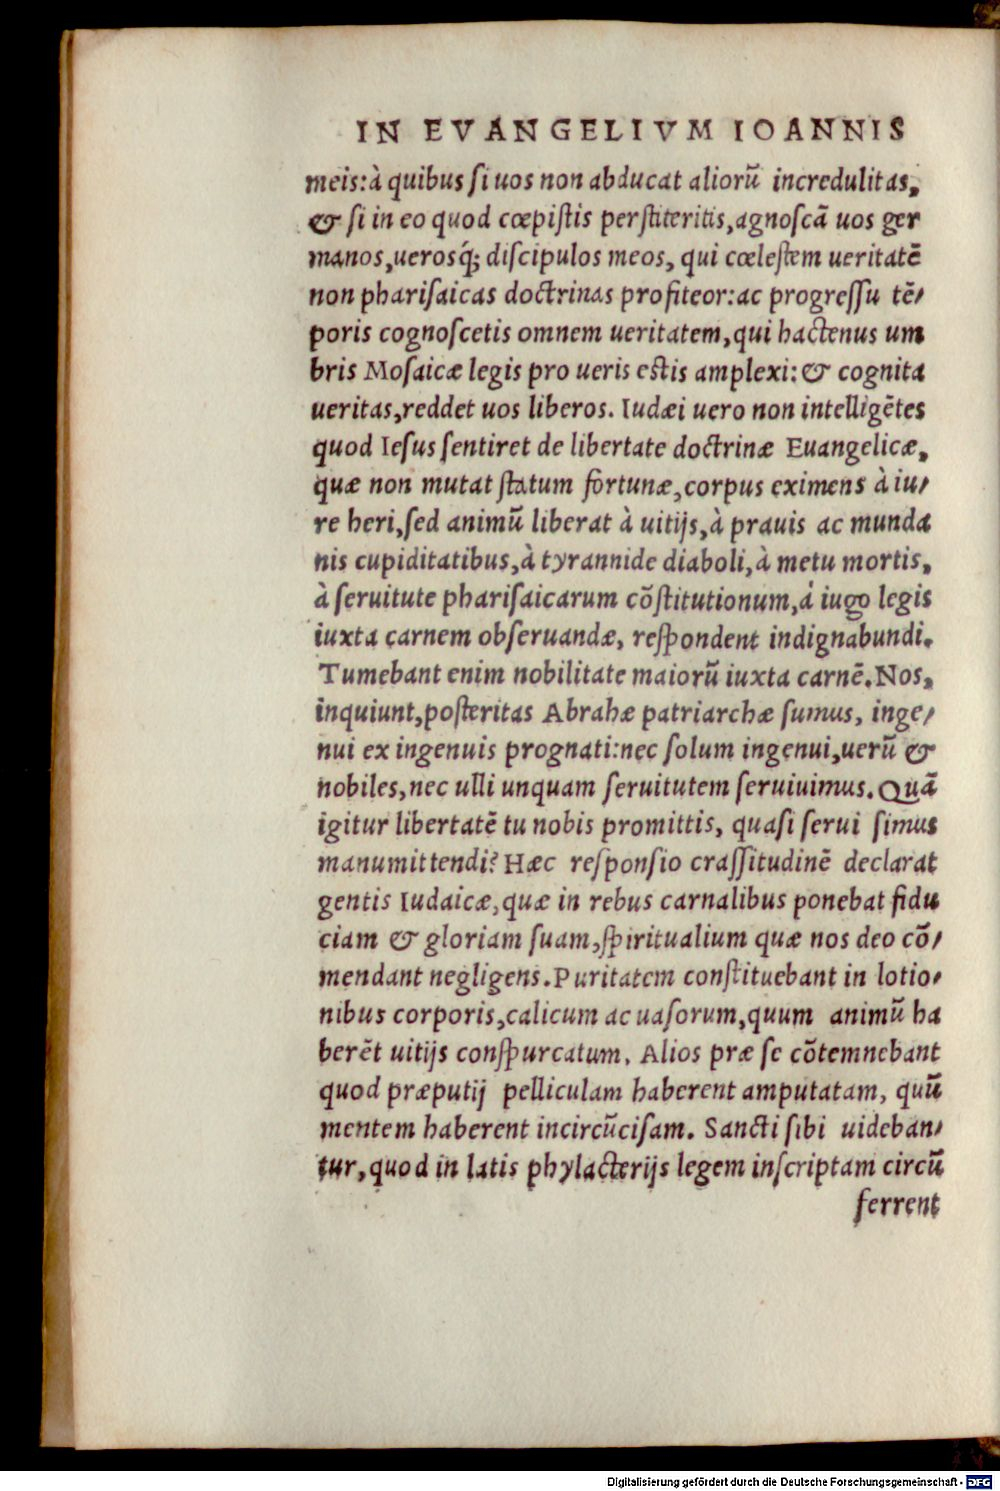 IN EVANGELIVM IOANNIS
meis:à quibus ſi uos non abducat aliorū incredulitas,
& ſi in eo quod cœpiſtis perſtiteritis,agnoſcā uos ger
manos,uerosq́; diſcipulos meos, qui cœleſtem ueritatē
non phariſaicas doctrinas profiteor:ac progreſſu tē/
poris cognoſcetis omnem ueritatem,qui hactenus um
bris Moſaicæ legis pro ueris eſtis amplexi:& cognita
ueritas,reddet uos liberos. Iudæi uero non intelligētes
quod Ieſus ſentiret de libertate doctrinæ Euangelicæ,
quæ non mutat ſtatum fortunæ,corpus eximens à iu/
re heri,ſed animū liberat à uitijs,à prauis ac munda
nis cupiditatibus,à tyrannide diaboli,à metu mortis,
à ſeruitute phariſaicarum cōſtitutionum,à iugo legis
iuxta carnem obſeruandæ, reſpondent indignabundi.
Tumebant enim nobilitate maiorū iuxta carnē.Nos,
inquiunt,poſteritas Abrahæ patriarchæ ſumus, inge/
nui ex ingenuis prognati:nec ſolum ingenui,uerū &
nobiles,nec ulli unquam ſeruitutem ſeruiuimus.Quā
igitur libertatē tu nobis promittis, quaſi ſerui ſimus
manumittendi? Hæc reſponſio craſſitudinē declarat
gentis Iudaicæ,quæ in rebus carnalibus ponebat fidu
ciam & gloriam ſuam,ſpiritualium quæ nos deo cō/
mendant negligens.Puritatem conſtituebant in lotio/
nibus corporis,calicum ac uaſorum,quum animū ha
berēt uitijs conſpurcatum. Alios præ ſe cōtemnebant
quod præputij pelliculam haberent amputatam, quū
mentem haberent incircūciſam. Sancti ſibi uideban/
tur,quod in latis phylacterijs legem inſcriptam circū
ferrent
Digitalisierung gefördert durch die Deutsche Forschungsgemeinschaft - DFG